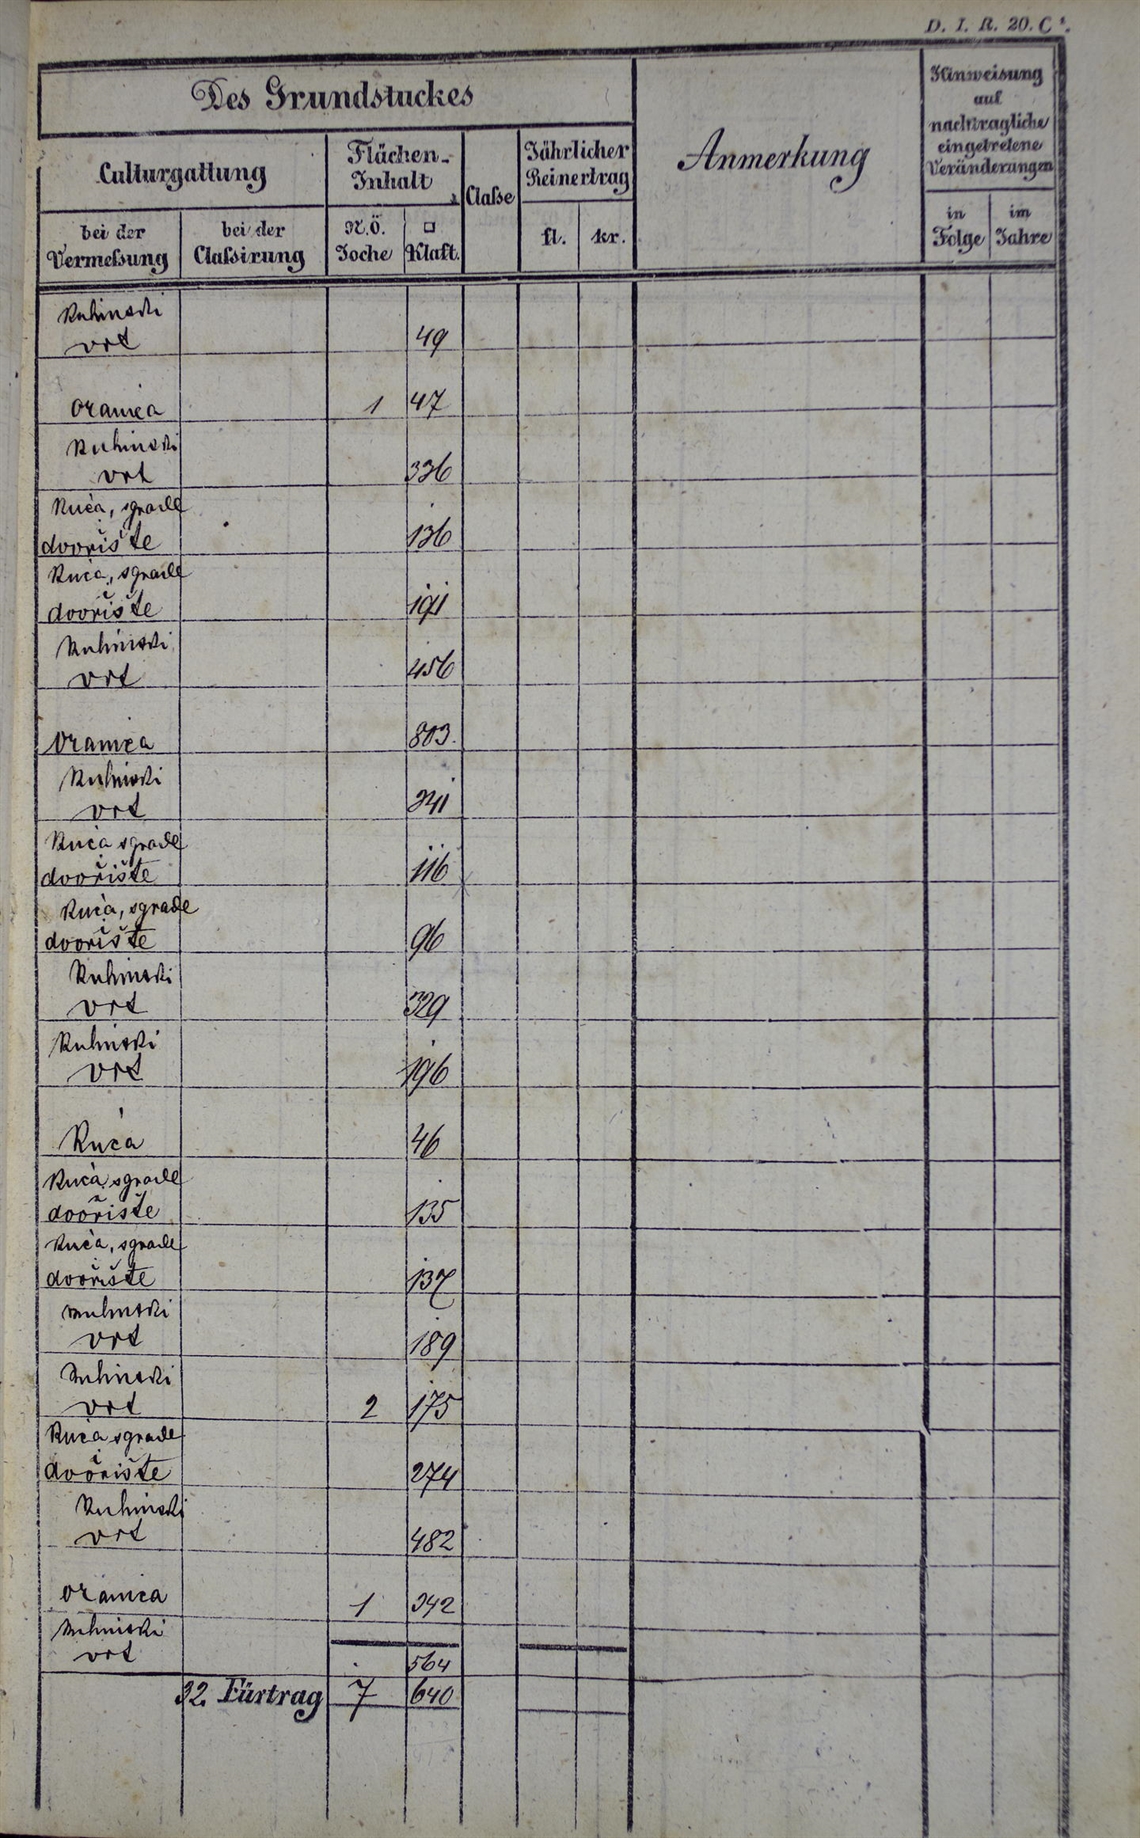 D. I. R. 20. C¹.
Des Grundstuckes
Anmerkung
Hinweisung
auf
nachtragliche
eingetretene
Veränderungen
Culturgattung
Flächen-
Inhalt
Claße
Jährlicher
Reinertrag
bei der
Vermeßung
bei der
Claßirung
N.Ö.
Joche
□
Klaft.
fl.
kr.
in
Folge
im
Jahre
Kuhinski
vrt 49
oranica 1 47
Kuhinski
vrt 336
Kuća, sgrade
dvorište 136
Kuća, sgrade
dvorište 191
Kuhinski
vrt 456
oranica 803
Kuhinski
vrt 341
Kuća sgrade
dvorište 116
Kuća, sgrade
dvorište 96
Kuhinski
vrt 329
Kuhinski
vrt 196
Kuća 46
Kuća sgrade
dvorište 135
Kuća, sgrade
dvorište 137
Kuhinski
vrt 189
Kuhinski
vrt 2 175
Kuća sgrade
dvorište 274
Kuhinski
vrt 482
oranica 1 342
Kuhinski
vrt 564
32. Fürtrag 7 640